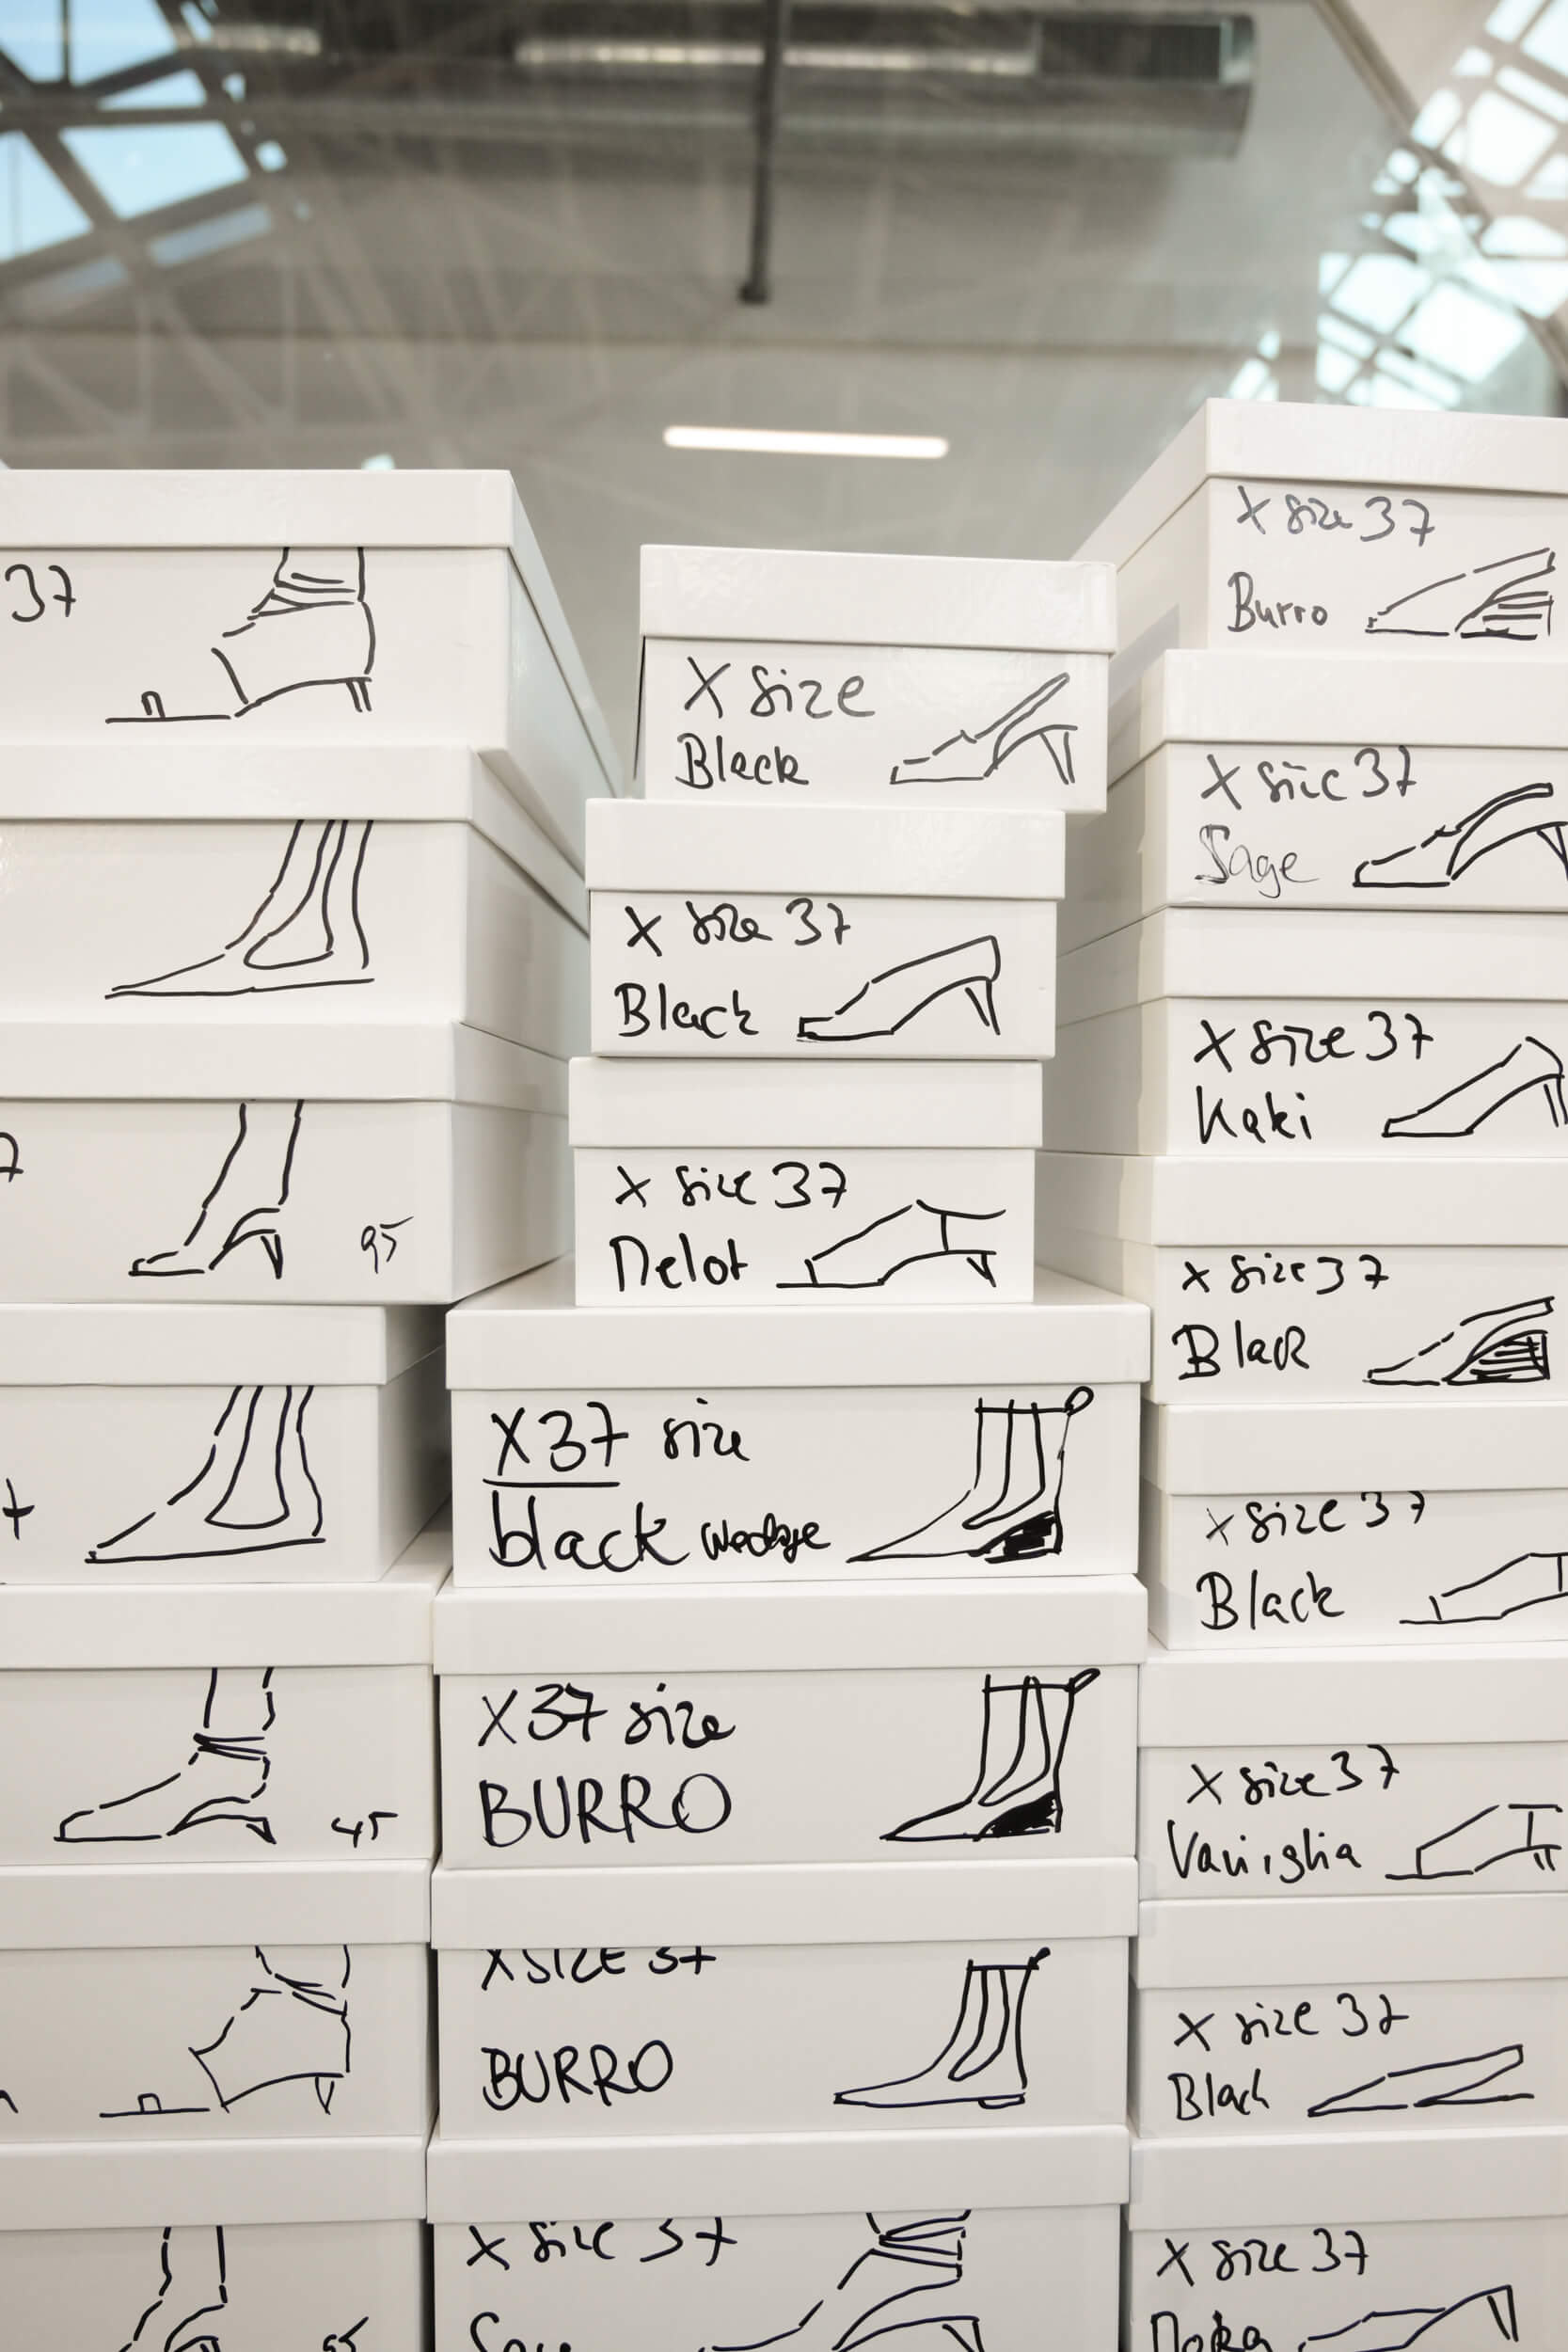 37
95
45
X size
Black
X size 37
Black
X size 37
Melot
X37 size
black wedge
X37 size
BURRO
X SIZE 37
BURRO
X size 37
X size 37
Burro
X size 37
Sage
X size 37
Kaki
X size 37
Black
X size 37
Black
X size 37
Vaniglia
X size 37
Black
X size 37